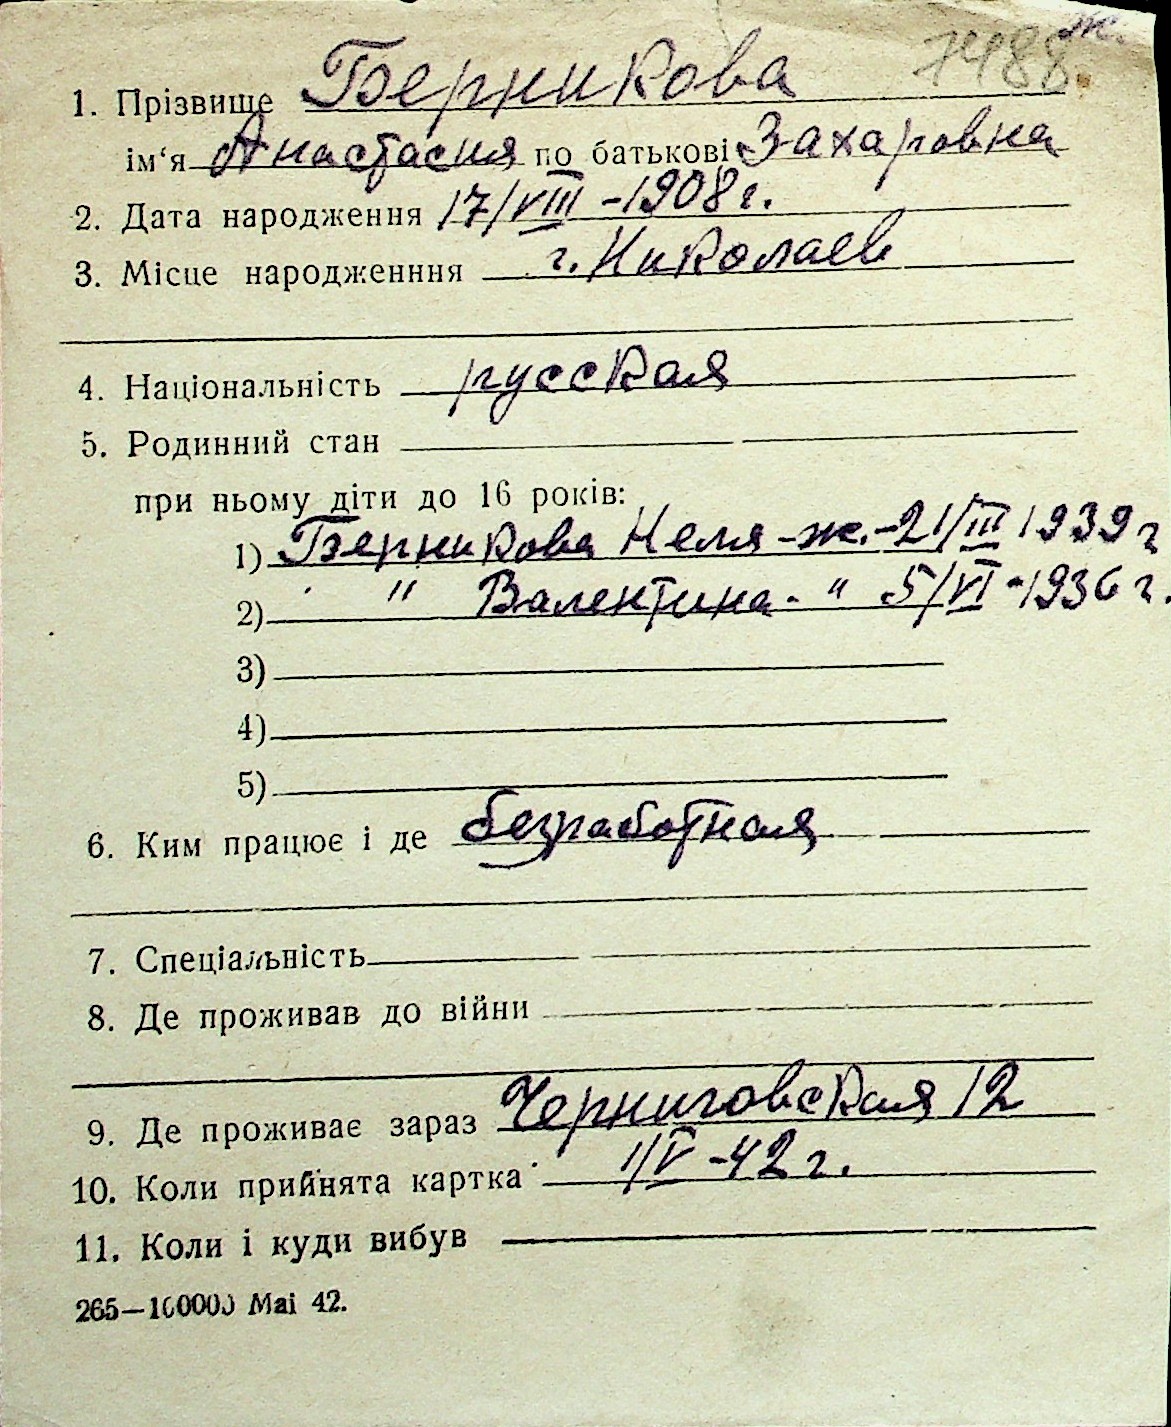 7488. ж.
1. Прізвище Берникова
ім‘я Анастасия по батькові Захаровна
2. Дата народження 17/VIII -1908 г.
3. Місце народженння г. Николаев
4. Національність русская
5. Родинний стан
при ньому діти до 16 років:
1) Берникова Неля -ж. -21/III 1939 г
2) " Валентина - " 5/VI -1936 г.
3)
4)
5)
6. Ким працює і де безработная
7. Спеціальність
8. Де проживав до війни
9. Де проживає зараз Черниговская 12
10. Коли прийнята картка 1/V -42 г.
11. Коли і куди вибув
265—100000 Mai 42.